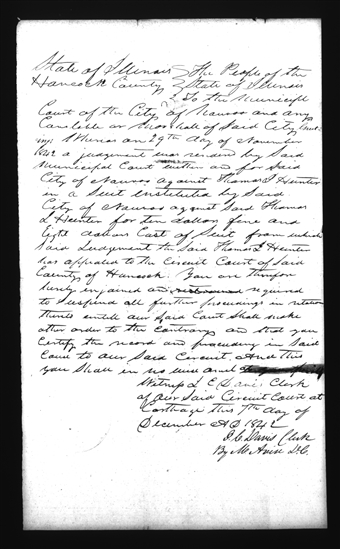 State of Illinois } The People of the
Hancock County } State of Illinois
To the Municipl
Court of the City of Nauvoo and any
Constable or Marshall of Said City
Whereas on 29th day of November
1842 a judgement was renderd by Said
Municipal Court within and for Said
City of Nauvoo against Thomas J Hunter
in a Suit instituted by Said
City of Nauvoo against Said Thomas
J Hunter for ten dollars fine and
Eight dollars Cost of Suit from which
Said Judgment the Said Thomas J Hunter
has appealed to the Circuit Court of Said
County of Hancock. You are therefore
hereby enjoined and required
to suspend all further proceedings in relation
thereto untill our Said Court Shall make
other order to the Contrary and that you
Certify the record and proceeding in Said
Cause to our Said Circuit. And this
You Shall in no wise omit
Witness J C Davis Clerk
of our Said Circuit Court at
Carthage this 7th day of
December AD 1842
J. C. Davis Clerk
By M Avise D.C.